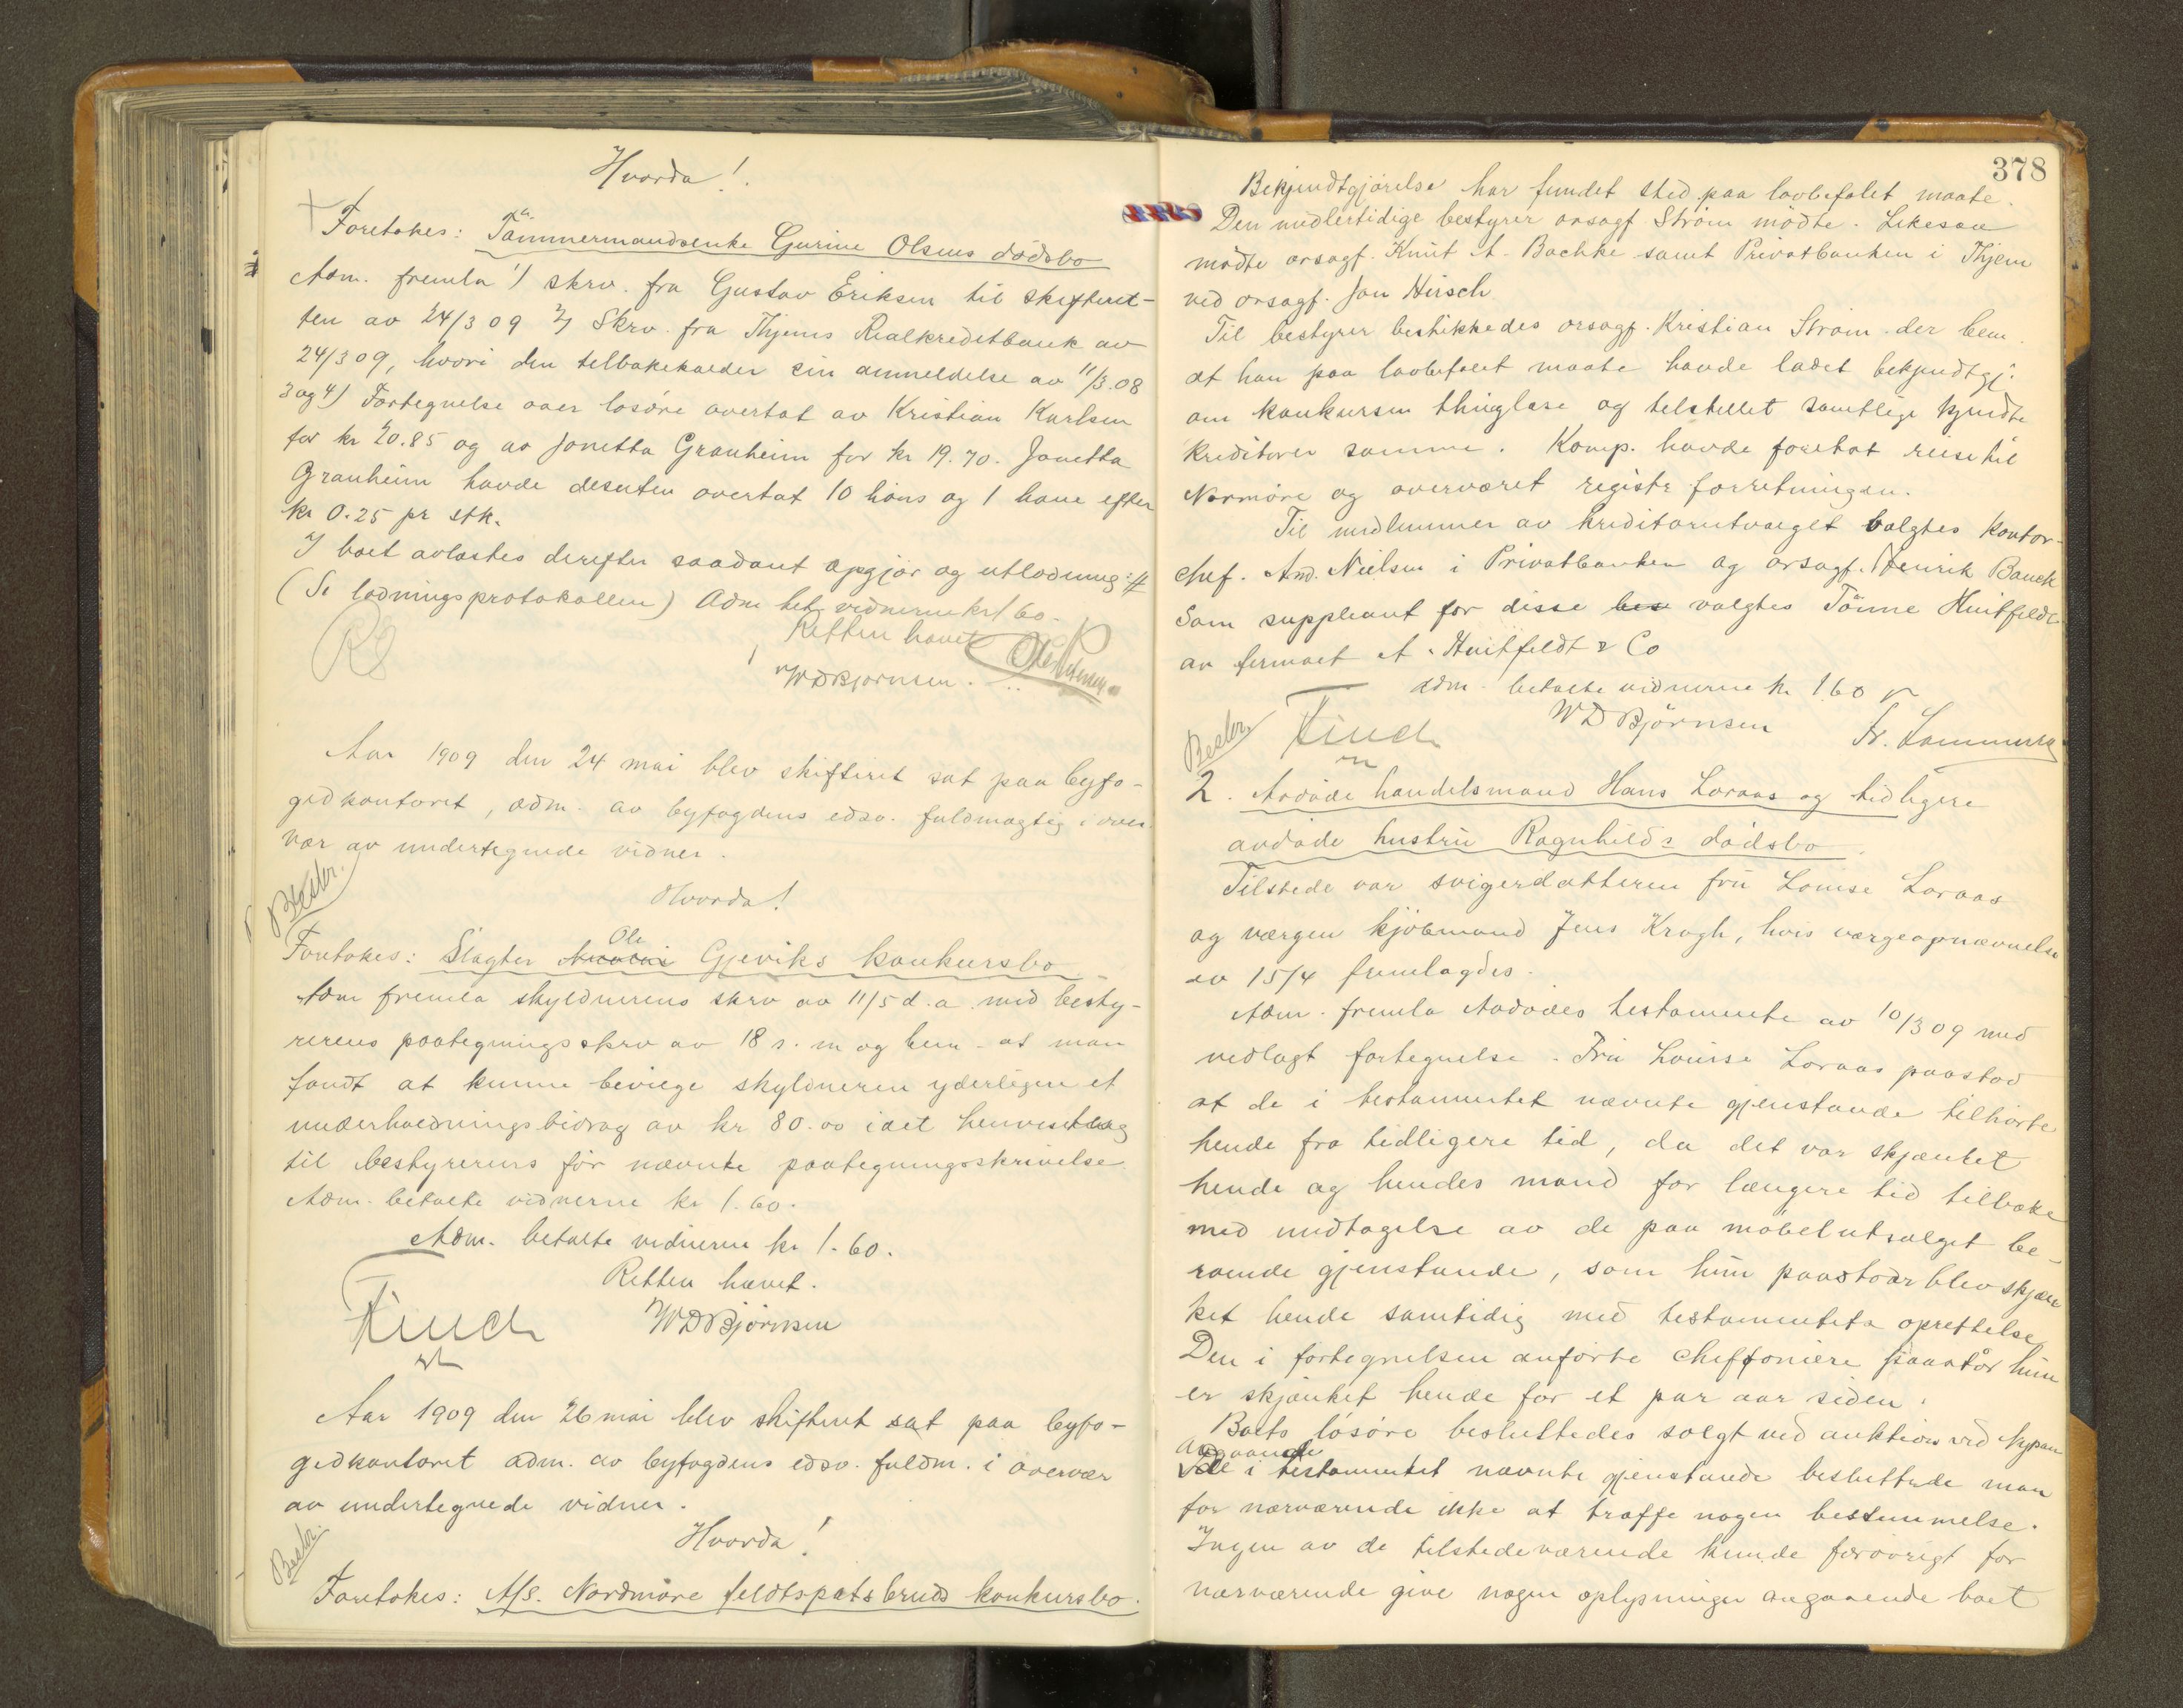 Hvorda!
Foretokes: Tømmermandsenke Gurine Olsens dödsbo
Adm. fremla 1) skrv. fra Gustav Eriksen til skifteret-
ten av 24/3 09 2) Skrv. fra Thjems Realkreditbank av
24/3 09, hvori den tilbakekalder sin anmeldelse av 11/3.08
3 og 4) Fortegnelse over løsøre overtat av Kristian Karlsen
for kr 20.85 og av Jonetta Granheim for kr 19.70. Jonetta
Granheim havde desuten overtat 10 höns og 1 hane efter
kr 0.25 pr stk.
I boet avlastes derefter saadant opgjør og utlodning:
(Se lodningsprotokollen) Adm bet. vidnerne kr 1 60.
Retten hævet
WDBjørnsen.
Aar 1909 den 24 mai blev skifteret sat paa byfo-
gedkontoret, adm. av byfogdens edsv. fuldmægtig i over-
vær av undertegnede vidner.
Bestbr.
Hvorda!
Foretokes: Slagter Ole Gjeviks konkursbo
Adm fremla skyldnerens skrv av 11/5 d.a. med besty-
rerens paategningsskrv av 18 s. m og bem. at man
fandt at kunne bevilge skyldneren yderligere et
underholdningsbidrag av kr 80.00 idet henvises
til bestyrerens før nævnte paategningsskrivelse
Adm. betalte vidnerne kr 1.60.
Adm. betalte vidnerne kr 1.60.
Retten hævet.
Finch
WDBjørnsen
Aar 1909 den 26 mai blev skifteret sat paa byfo-
gedkontoret adm. av byfogdens edsv. fuldm. i overvær
av undertegnede vidner.
Hvorda!
Bestbr.
Foretokes: A/S. Nordmøre feldtspatsbruds konkursbo.
378
Bekjendtgjørelse har fundet sted paa lovbefalet maate.
Den midlertidige bestyrer orsagf. Strøm mødte. Likesaa
mødte orsagf. Knut A. Bachke samt Privatbanken i Thjem
ved orsagf. Jan Hirsch
Til bestyrer beskikkedes orsagf. Kristian Strøm der bem.
at han paa lovbefalet maate havde ladet bekjendtgj.
om konkursen thinglæse og tilstillet samtlige kjendte
kreditorer samme. Komp. havde foretat reise til
Normøre og overværet registr forretningen.
Til medlemmer av kreditorutvalget valgtes kontor-
chef. And. Nielsen i Privatbanken og orsagf. Henrik Bauck
Som suppleant for disse bes valgtes Tönne Huitfeldt
av firmaet A. Huitfeldt & Co
Adm. betalte vidnerne kr 1 60
Bestbr
Finch
WDBjørnsen
Fr. Lammers
2. Avdöde handelsmand Hans Loraas og tidligere
avdöde hustru Ragnhilds dödsbo.
Tilstede var svigerdatteren fru Louise Loraas
og værgen kjøbmand Jens Krogh, hvis værgeopnævnelse
av 15/4 fremlagdes.
Adm. fremla Avdödes testamente av 10/3 09 med
vedlagt fortegnelse. Fru Louise Loraas paastod
at de i testamentet nævnte gjenstande tilhørte
hende fra tidligere tid, da det var skjænket
hende og hendes mand for længere tid tilbake
med undtagelse av de paa møbelutsalget be-
roende gjenstande, som hun paastaar blev skjæn
ket hende samtidig med testamentets oprettelse
Den i fortegnelsen anførte cheffoniere paastår hun
er skjænket hende for et par aar siden.
Boets løsøre besluttedes solgt ved auktion ved Nypan
Angaaende
de i testamentet nævnte gjenstande besluttede man
for nærværende ikke at træffe nogen bestemmelse.
Ingen av de tilstedeværende kunde forøvrigt for
nærværende give nogen oplysninger angaaende boet